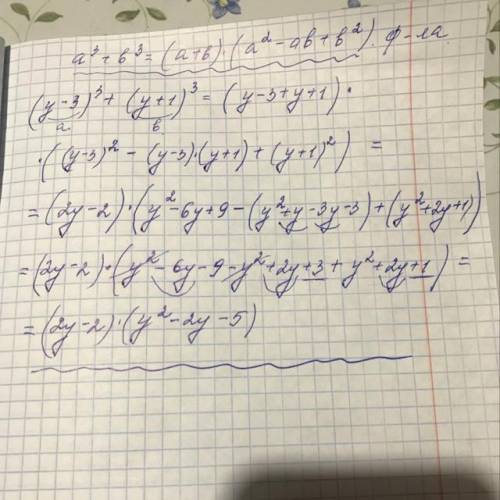 a³ + b³ = (a+b)·(a² - ab + b²). ф-ла
(y-3)³ + (y+1)³ = (y-3+y+1)·
a b
·((y-3)² - (y-3)·(y+1) + (y+1)²) =
= (2y-2)·(y²-6y+9-(y²+y-3y-3)+(y²+2y+1))
= (2y-2)·(y²-6y-9-y²+2y+3+y²+2y+1) =
= (2y-2)·(y²-2y-5)